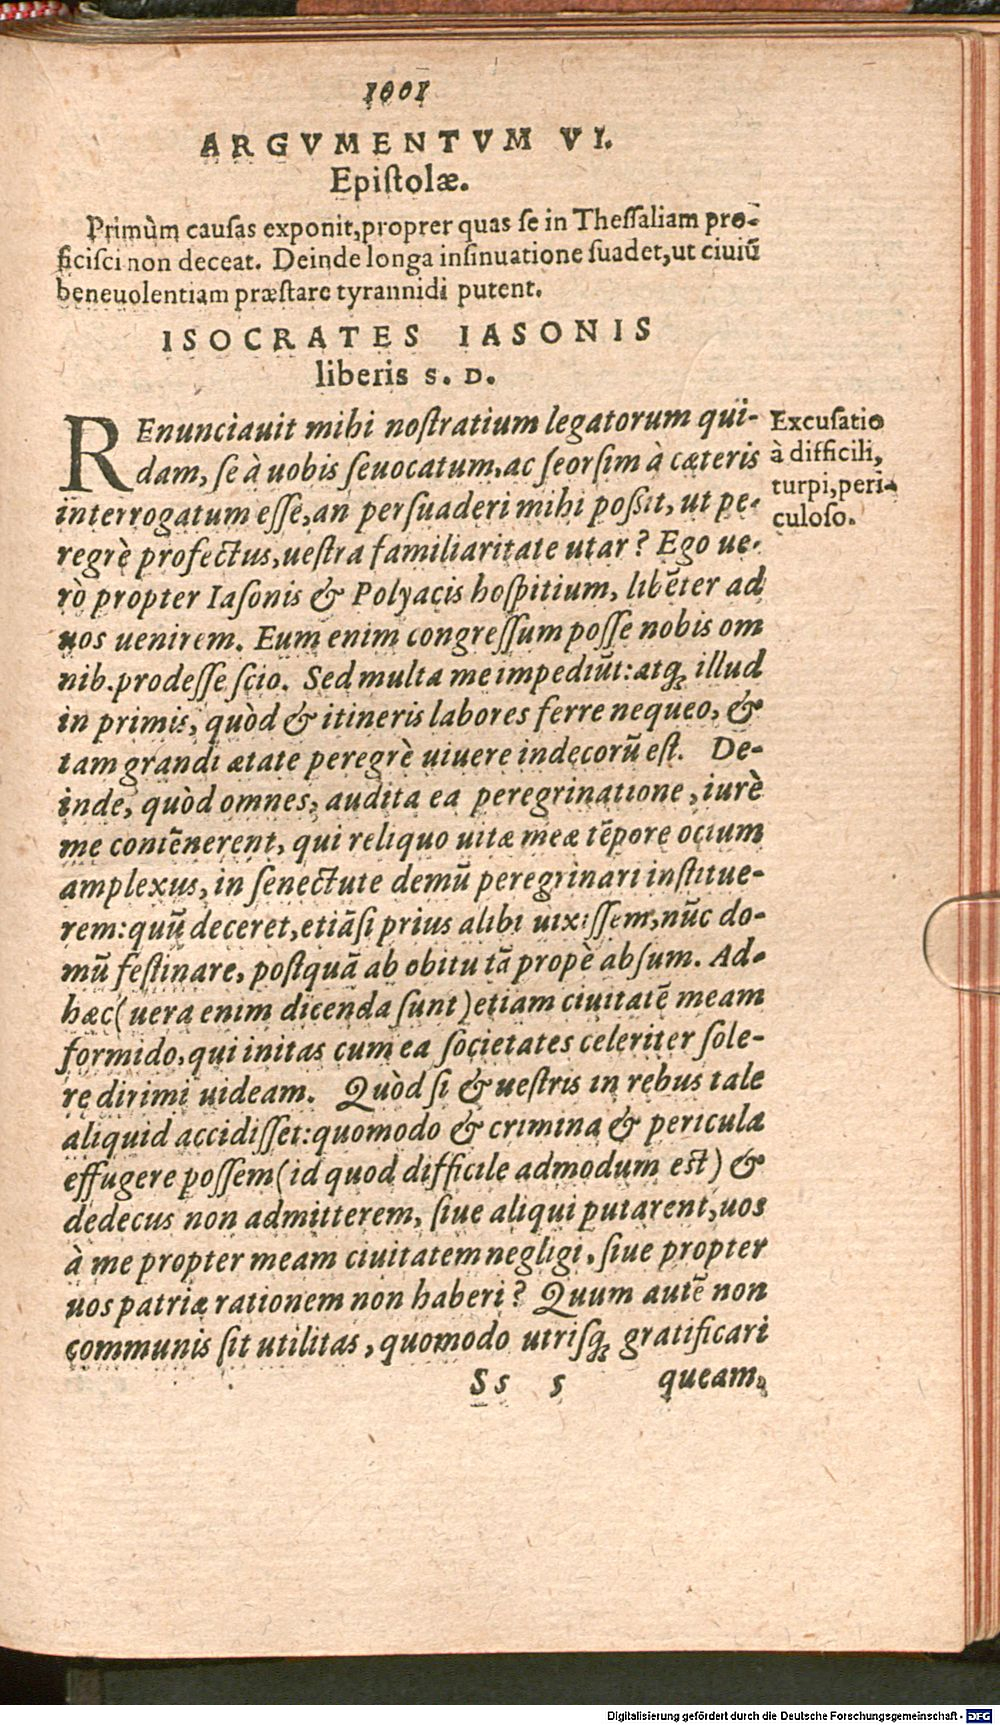 1001
ARGVMENTVM VI.
Epistolæ.
Primùm causas exponit, proprer quas se in Thessaliam pro-
ficisci non deceat. Deinde longa insinuatione suadet, ut ciuiũ
beneuolentiam præstare tyrannidi putent.
ISOCRATES IASONIS
liberis S. D.
REnunciauit mihi nostratium legatorum qui-
dam, se à uobis seuocatum, ac seorsim à cæteris
interrogatum esse, an persuaderi mihi possit, ut pe-
regrè profectus, uestra familiaritate utar? Ego ue-
rò propter Iasonis & Polyacis hospitium, libẽter ad
uos uenirem. Eum enim congressum posse nobis om
nib. prodesse scio. Sed multa me impediũt: atq; illud
in primis, quòd & itineris labores ferre nequeo, &
tam grandi ætate peregrè uiuere indecorũ est. De-
inde, quòd omnes, audita ea peregrinatione, iurè
me contẽnerent, qui reliquo uitæ meæ tẽpore ocium
amplexus, in senectute demũ peregrinari institue-
rem: quũ deceret, etiãsi prius alibi uixissem, nũc do-
mũ festinare, postquã ab obitu tã propè absum. Ad-
hæc (uera enim dicenda sunt) etiam ciuitatẽ meam
formido, qui initas cum ea societates celeriter sole-
re dirimi uideam. Quòd si & uestris in rebus tale
aliquid accidisset: quomodo & crimina & pericula
effugere possem (id quod difficile admodum est) &
dedecus non admitterem, siue aliqui putarent, uos
à me propter meam ciuitatem negligi, siue propter
uos patriæ rationem non haberi? Quum autẽ non
communis sit utilitas, quomodo utrisq; gratificari
Ss 5 queam,
Excusatio
à difficili,
turpi, peri-
culoso.
Digitalisierung gefördert durch die Deutsche Forschungsgemeinschaft - DFG